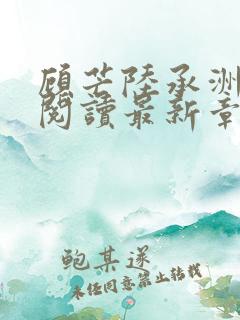 顧芒陸承洲
閱讀最新章
鮑某遂
未经同意禁止转载